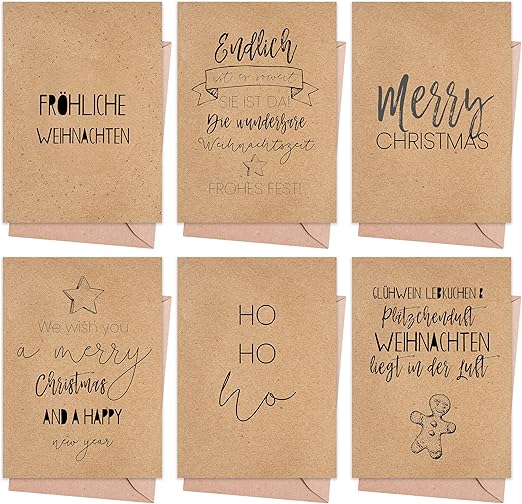 FRÖHLICHE
WEIHNACHTEN
Endlich
ist es soweit
SIE IST DA!
Die wunderbare
Weihnachtszeit
FROHES FEST!
Merry
CHRISTMAS
We wish you
a merry
Christmas
AND A HAPPY
new year
HO
HO
Ho
GLÜHWEIN LEBKUCHEN &
Plätzchenduft
WEIHNACHTEN
liegt in der Luft